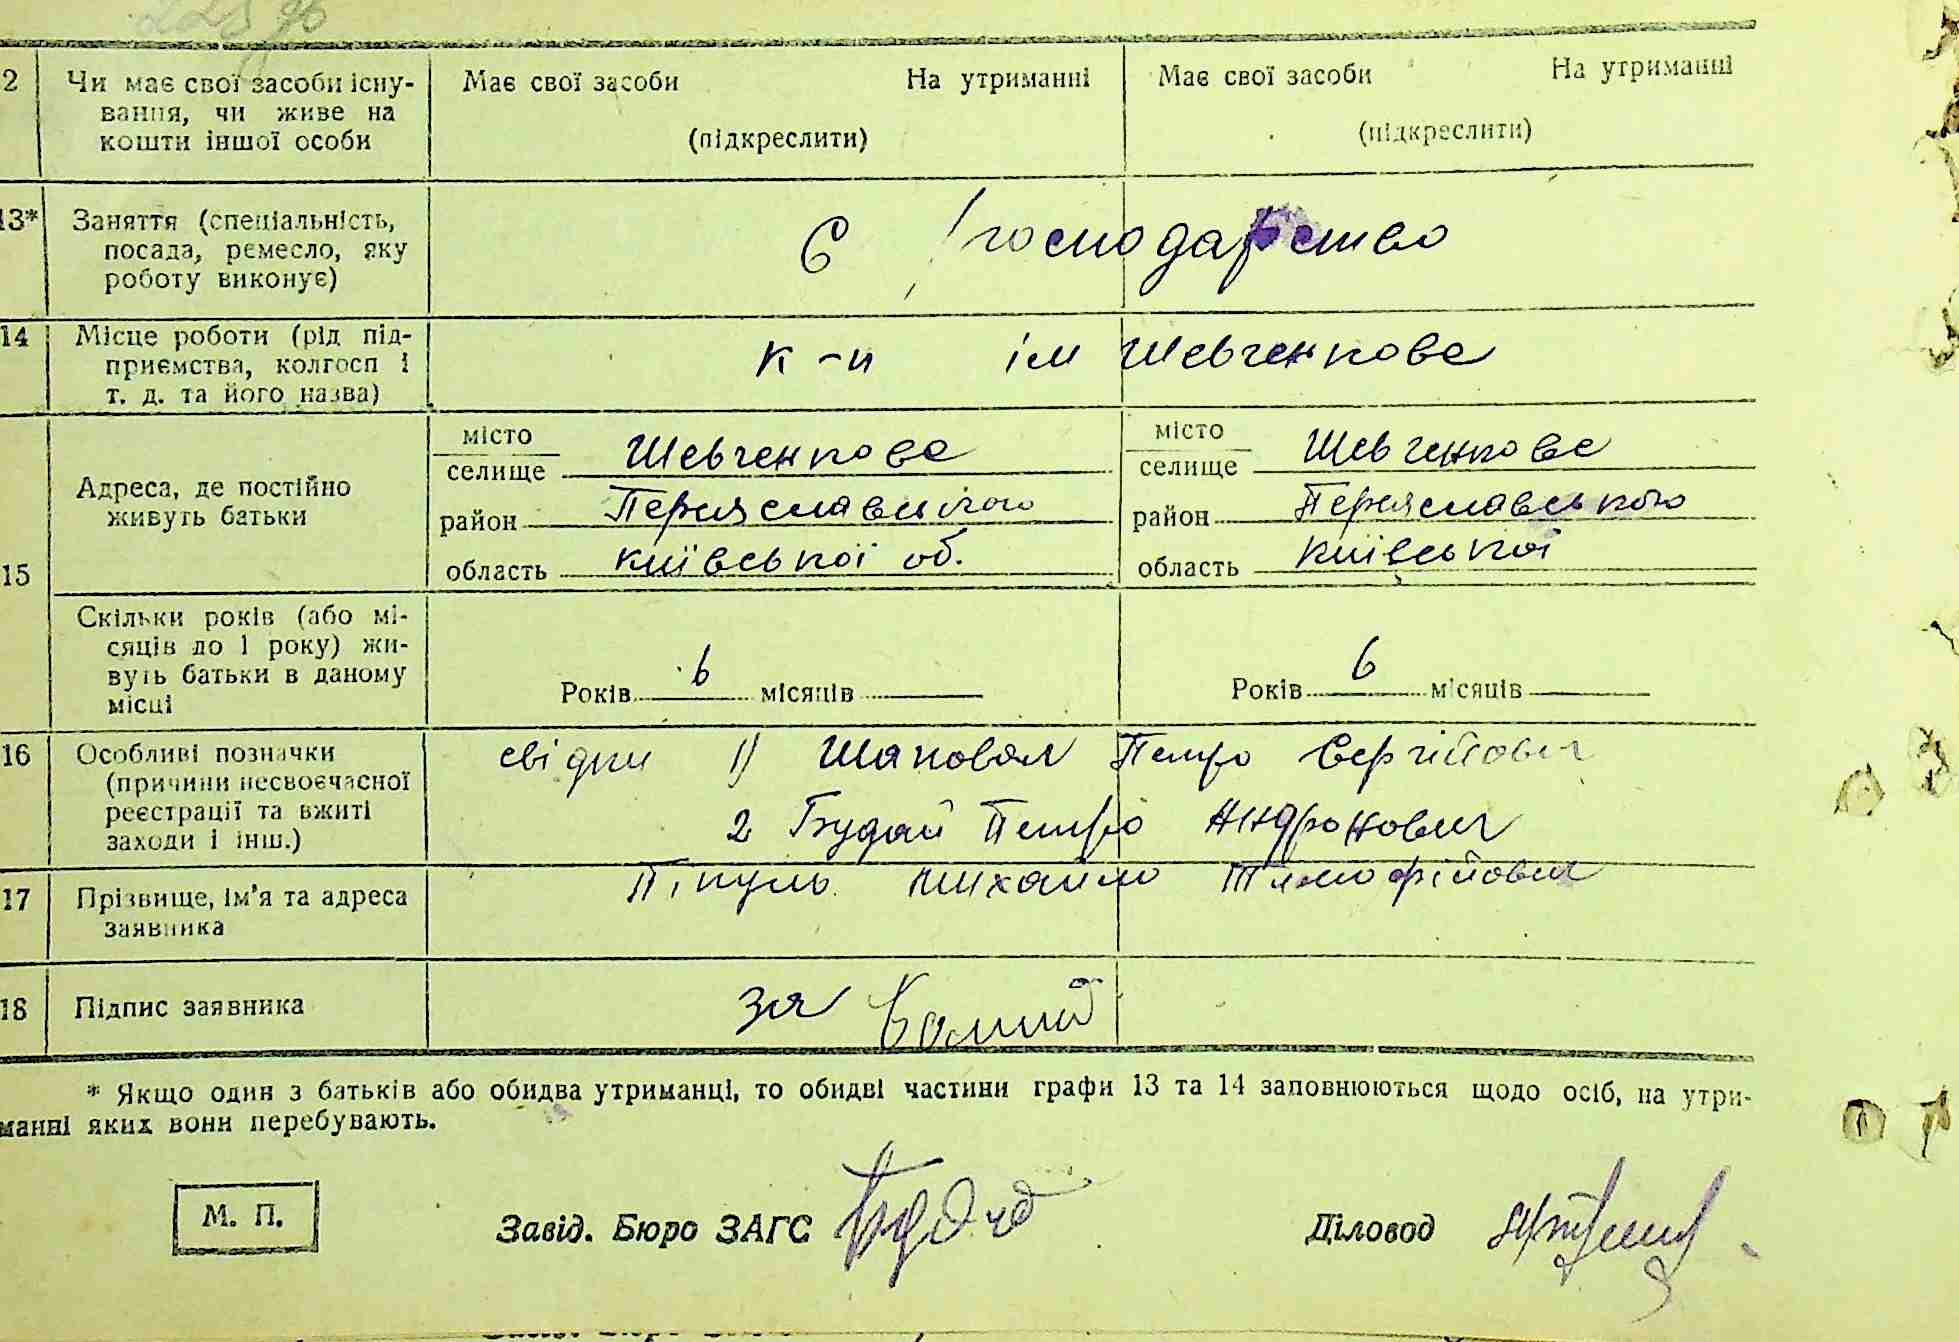 2 Чи має свої засоби існу- Має свої засоби На утриманні Має свої засоби На утриманні
вання, чи живе на
кошти іншої особи (підкреслити) (підкреслити)
13* Заняття (спеціальність,
посада, ремесло, яку С /господарство
роботу виконує)
14 Місце роботи (рід під-
приємства, колгосп і к-п ім Шевченкове
т. д. та його назва)
15 Адреса, де постійно
живуть батьки
місто
селище Шевченкове
район Переяславського
область київської об.
місто
селище Шевченкове
район Переяславського
область київської
Скільки років (або мі-
сяців до 1 року) жи-
вуть батьки в даному
місці
Років 6 місяців
Років 6 місяців
16 Особливі позначки
(причини несвоєчасної
реєстрації та вжиті
заходи і інш.)
свідки 1) Шаповал Петро Сергійович
2 Будай Петро Андронович
17 Прізвище, ім'я та адреса
заявника
Пікуль Михайло Тимофійович
18 Підпис заявника за
* Якщо один з батьків або обидва утриманці, то обидві частини графи 13 та 14 заповнюються щодо осіб, на утри-
манні яких вони перебувають.
М. П. Завід. Бюро ЗАГС Діловод